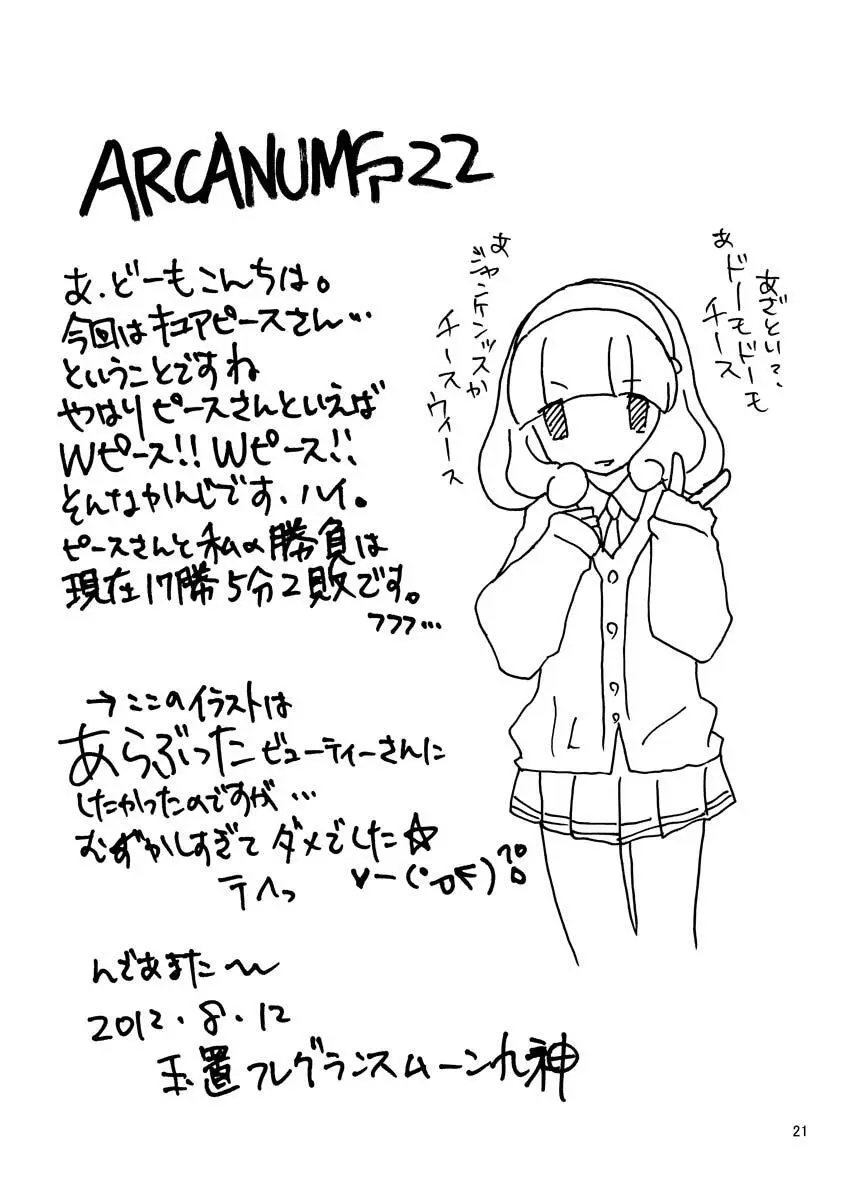 ARCANUMS 22
あ、どーもこんちは。
今回はキュアピースさん…
ということですね
やはりピースさんといえば
Wピース!! Wピース!!
そんなかんじです、ハイ。
ピースさんと私の勝負は
現在17勝5分2敗です。
フフフ…
あざとい?、
あ
ドーモドーモ
チース
あ
ジャンケンッスか
チース
ウィース
→ここのイラストは
あらぶったビューティーさんに
したかったのですが…
むずかしすぎてダメでした☆
テヘっ
んであまた〜
2012.8.12
玉置フレグランスムーン九神
21